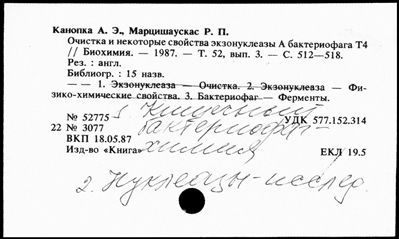 Канопка А. Э., Марцишаускас Р. П.
Очистка и некоторые свойства экзонуклеазы А бактериофага Т4
// Биохимия. — 1987. — Т. 52, вып. 3. — С. 512—518.
Рез. : англ.
Библиогр. : 15 назв.
— — 1. Экзонуклеаза — Очистка. 2. Экзонуклеаза — Фи-
зико-химические свойства. 3. Бактериофаг — Ферменты.
1. Кишечный
№ 52775 УДК 577.152.314
бактериофаг-
22 № 3077
химия
ВКП 18.05.87
Изд-во «Книга» ЕКЛ 19.5
2. Нуклеазы-исслед.